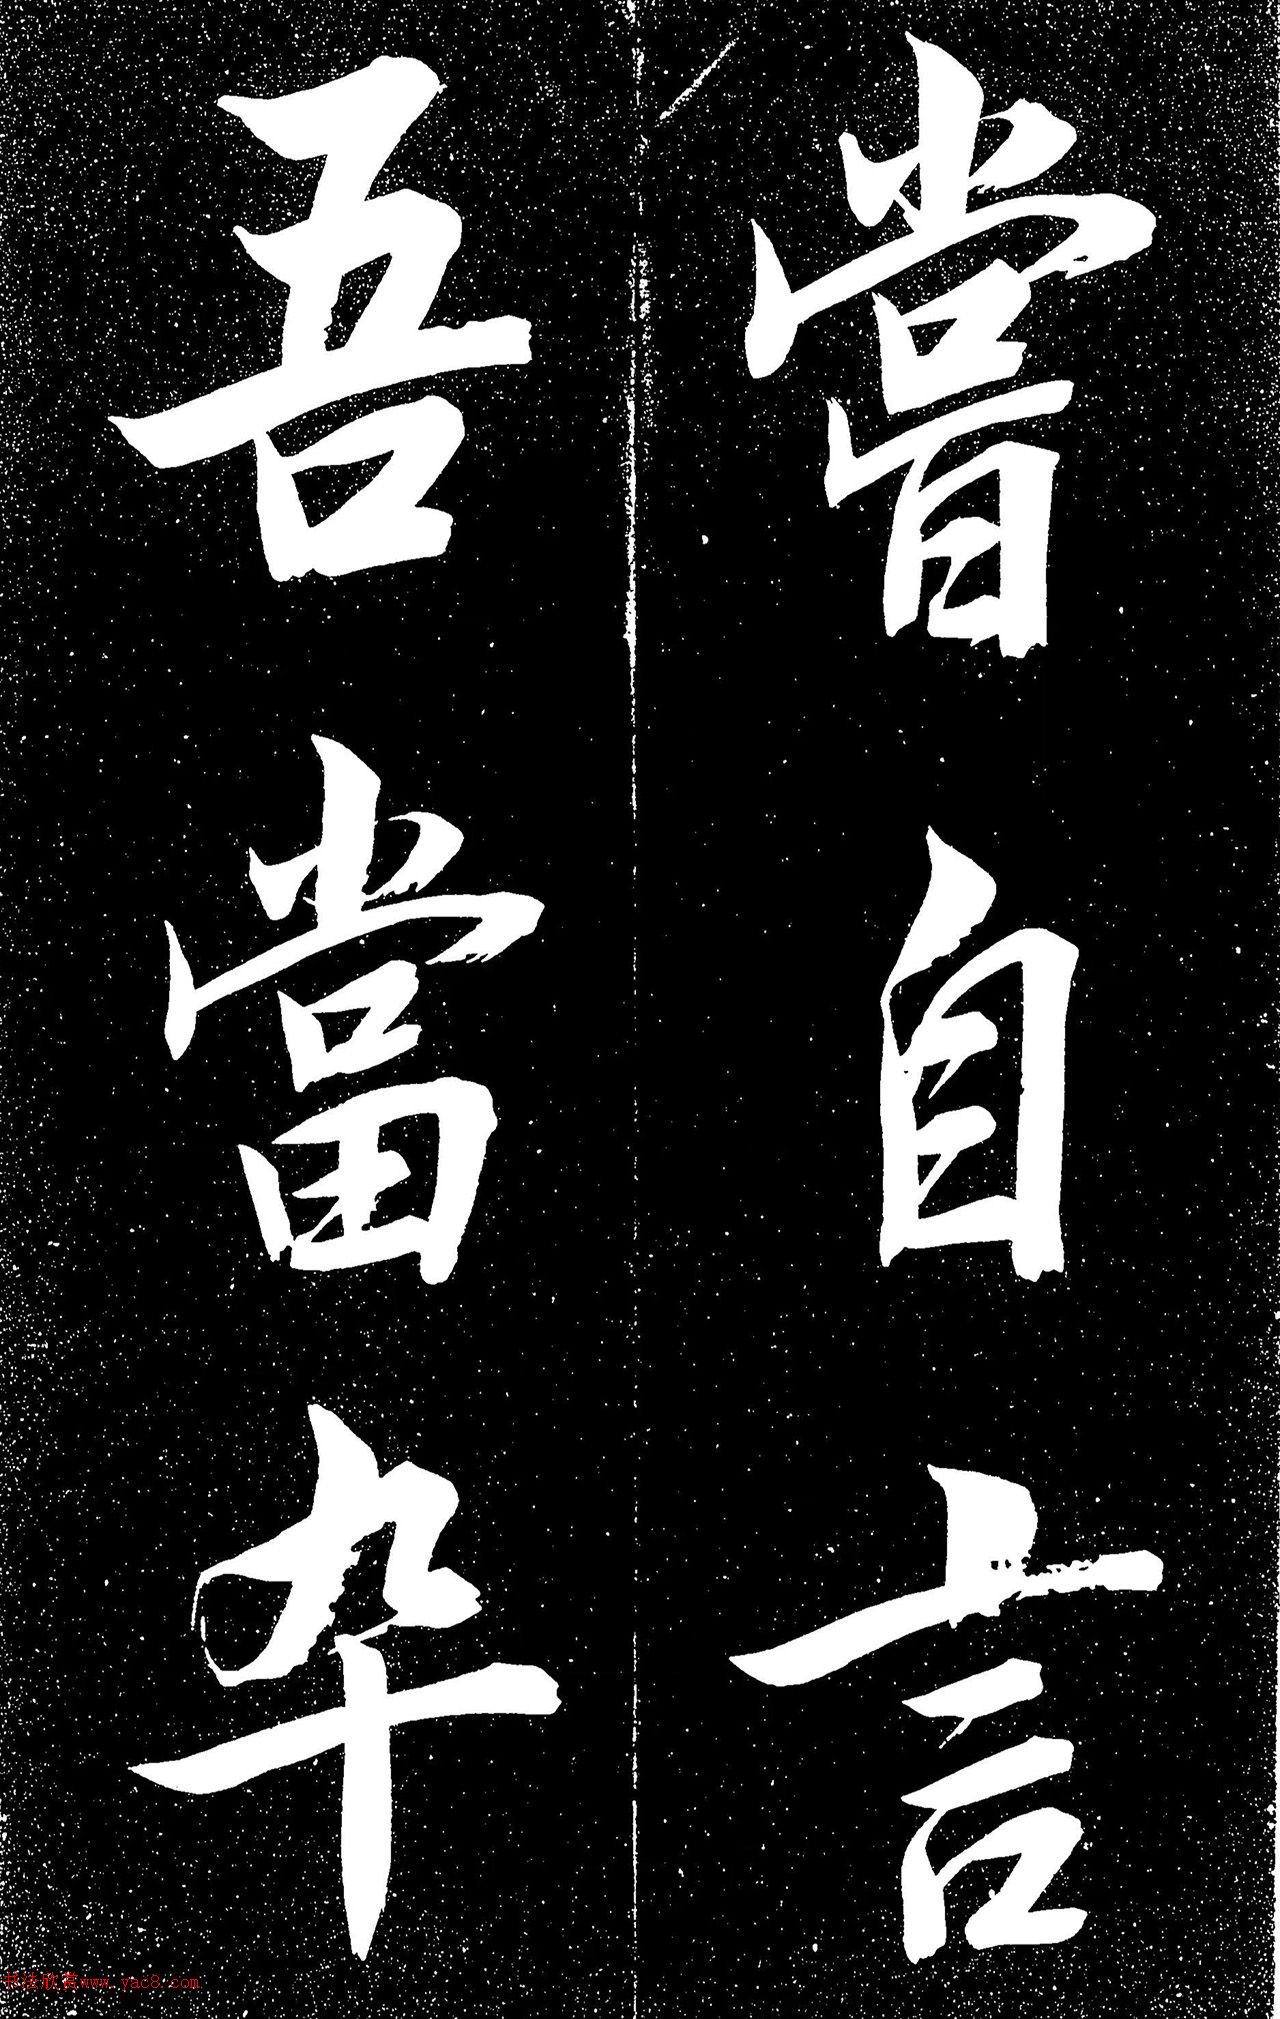 嘗自言
吾當卒
书法欣赏www.yac8.com